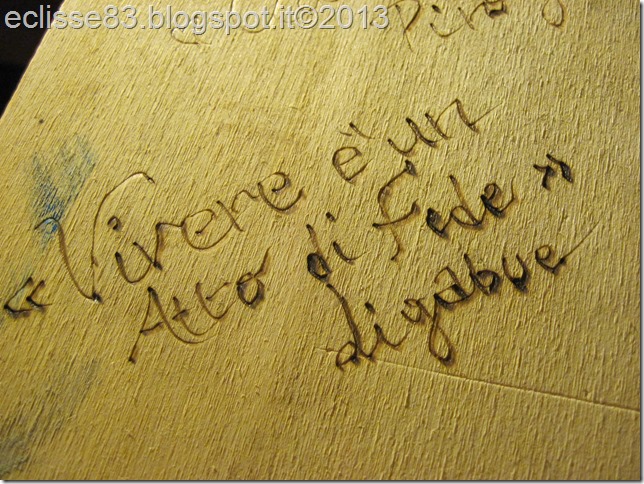 eclisse83.blogspot.it©2013
«Vivere è un
Atto di fede»
ligabue